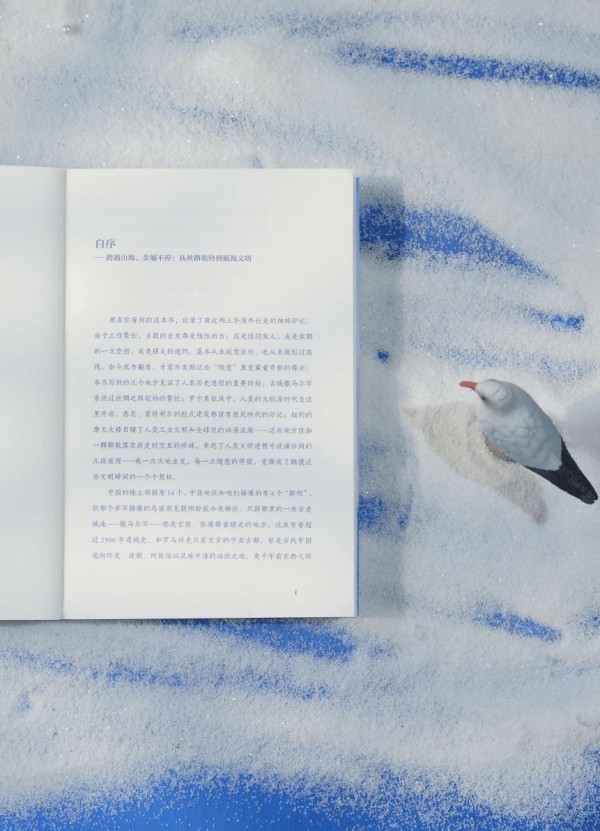 自序
——跨越山海，步履不停：从丝路驼铃到航海文明
现在你看到的这本书，记录了我这两三年海外行走的细碎印记。
由于工作繁忙，多数的出发都是随性而为：或是陪同家人，或是假期
的一次空档，或是朋友的邀约，基本从未刻意出行，也从未规划过路
线。如今或书翻看，才意外发现这些“随意”里竟藏着奇妙的缘分。
本书写到的几个地方见证了人类历史进程的重要时刻：古城撒马尔罕
里历过丝绸之路驼铃的繁忙；罗卡角狂风中，人类的大航海时代自这
里开启；悉尼、蒙特利尔的欧式建筑都留有殖民时代的印记；纽约的
摩天大楼目睹了人类工业文明和全球化的汹涌浪潮——这些地方犹如
一颗颗散落在历史时空里的珍珠，串起了人类文明进程中波澜壮阔的
几段旅程——我一次次地出发，每一次随意的停留，竟都成了触摸这
些文明瞬间的一个个契机。
中国的陆上邻国有14个，中亚地区和咱们接壤的有4个“斯坦”，
但那个并不接壤的乌兹别克斯坦却最令我神往。只因那里的一座古老
城池——撒马尔罕——那是玄奘、张骞都曾踏足的地方。这座有着超
过2500年建城史、和罗马历史只差百岁的中亚古都，曾是古代中国
通向印度、波斯、阿拉伯以及地中海的必经之地，是千年前东西文明
1